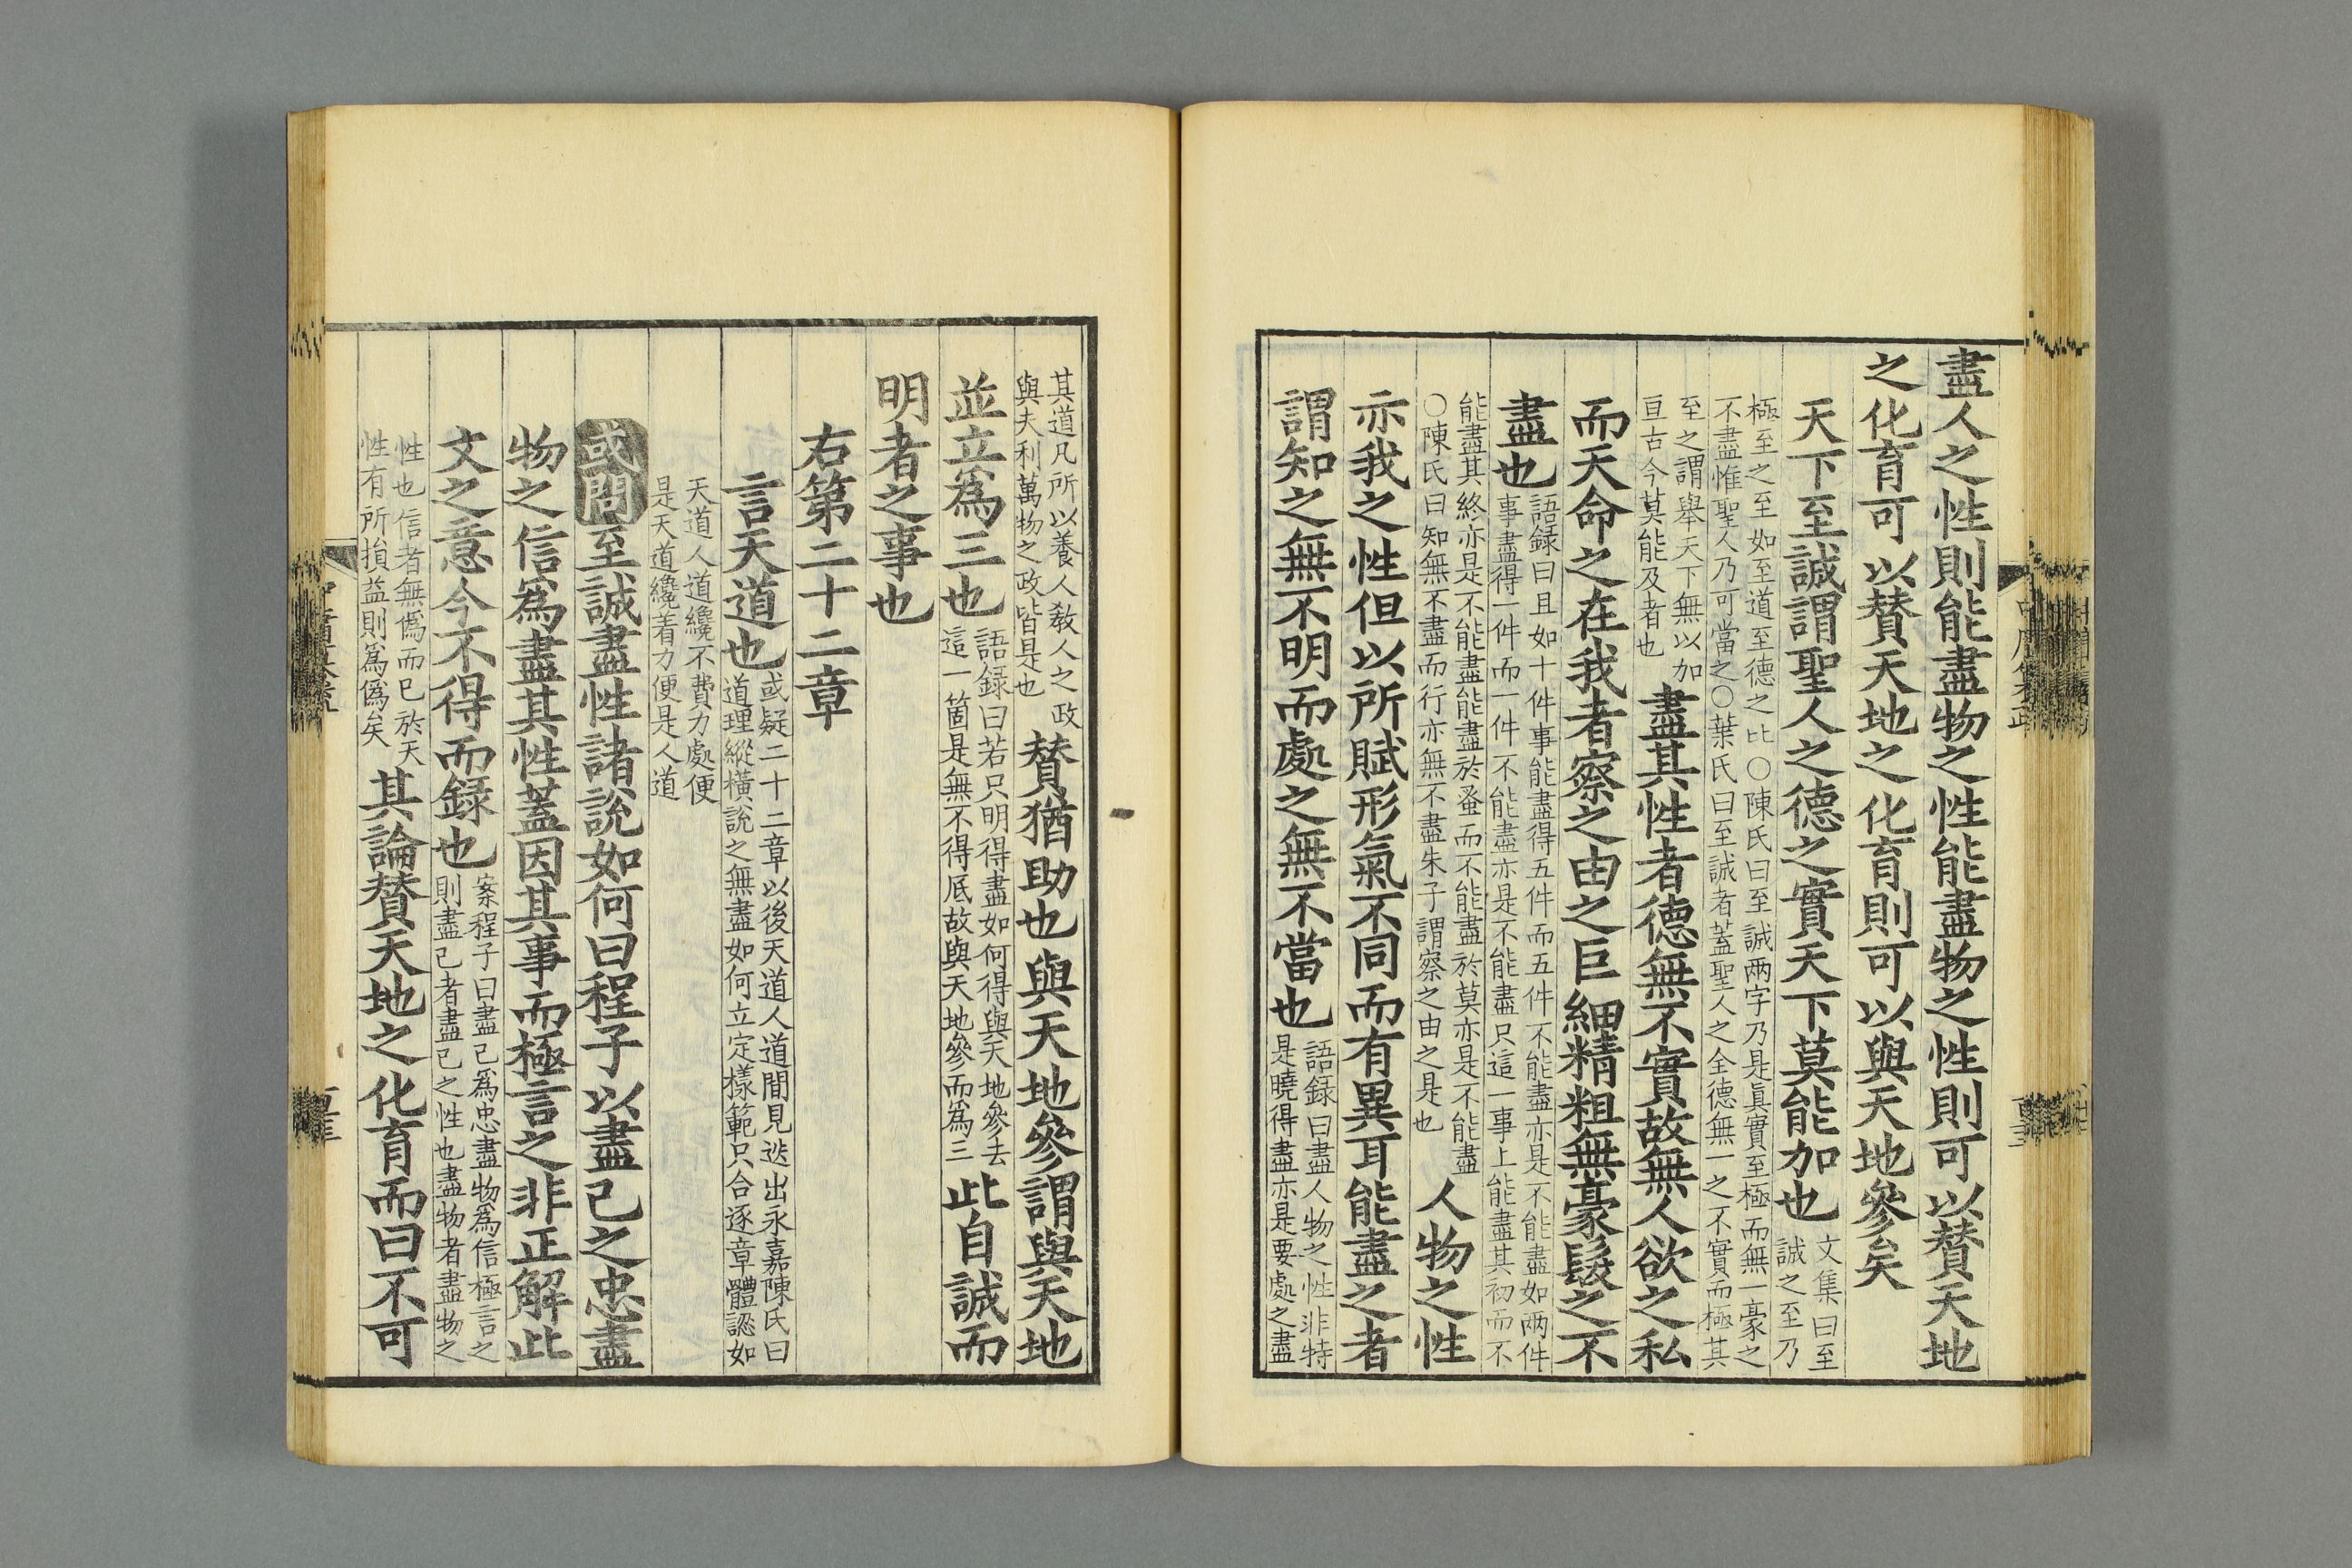 盡人之性則能盡物之性能盡物之性則可以贊天地
之化育可以贊天地之化育則可以與天地參矣
天下至誠謂聖人之德之實天下莫能加也
文集曰至
誠之至乃
極至之至如至道至德之比○陳氏曰至誠兩字乃是眞實至極而無一豪之
不盡惟聖人乃可當之○葉氏曰至誠者蓋聖人之全德無一之不實而極其
至之謂舉天下無以加
亘古今莫能及者也
盡其性者德無不實故無人欲之私
而天命之在我者察之由之巨細精粗無豪髮之不
盡也
語録曰且如十件事能盡得五件而五件不能盡亦是不能盡如兩件
事盡得一件而一件不能盡亦是不能盡只這一事上能盡其初而不
能盡其終亦是不能盡能盡於蚤而不能盡於莫亦是不能盡
○陳氏曰知無不盡而行亦無不盡朱子謂察之由之是也
人物之性
亦我之性但以所賦形氣不同而有異耳能盡之者
謂知之無不明而處之無不當也
語録曰盡人物之性非特
是曉得盡亦是要處之盡
其道凡所以養人敎人之政
與夫利萬物之政皆是也
贊猶助也與天地參謂與天地
並立爲三也
語録曰若只明得盡如何得與天地參去
這一箇是無不得底故與天地參而爲三
此自誠而
明者之事也
右第二十二章
言天道也
或疑二十二章以後天道人道間見迭出永嘉陳氏曰
道理縱橫說之無盡如何立定樣範只合逐章體認如
天道人道纔不費力處便
是天道纔着力便是人道
或問至誠盡性諸說如何曰程子以盡己之忠盡
物之信爲盡其性蓋因其事而極言之非正解此
文之意今不得而録也
案程子曰盡己爲忠盡物爲信極言之
則盡己者盡己之性也盡物者盡物之
性也信者無僞而已於天
性有所損益則爲僞矣
其論贊天地之化育而曰不可